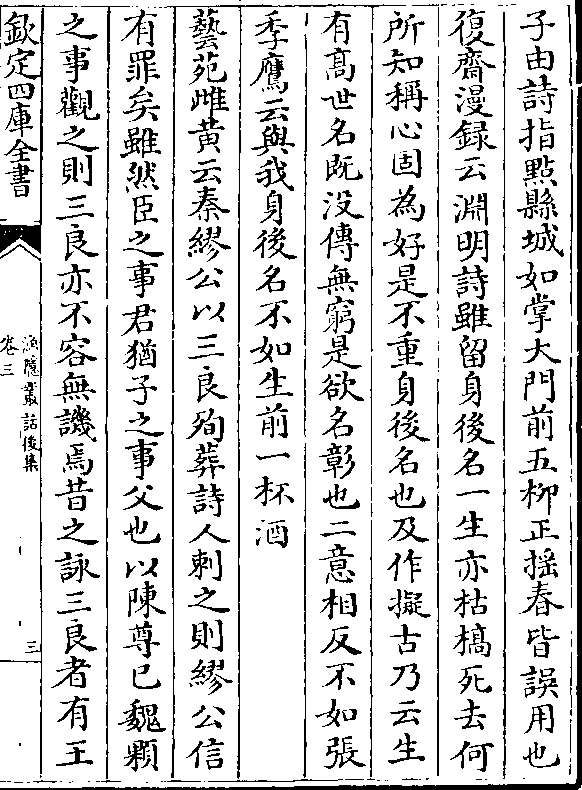 子由詩指點縣城如掌大門前五柳正揺春皆誤用也
復齋漫録云淵明詩雖留身後名一生亦枯槁死去何
所知稱心固為好是不重身後名也及作擬古乃云生
有髙世名既没傳無窮是欲名彰也二意相反不如張
季鷹云與我身後名不如生前一杯酒
藝苑雌黄云秦繆公以三良殉葬詩人刺之則繆公信
有罪矣雖然臣之事君猶子之事父也以陳尊已魏顆
之事觀之則三良亦不容無譏焉昔之詠三良者有王
欽定四庫全書
漁隱叢話後集
卷三
三